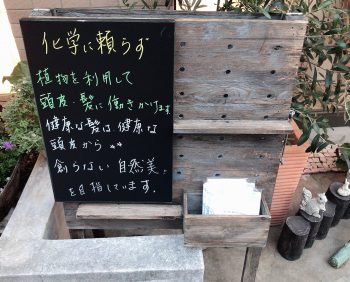 化学に頼らず
植物を利用して
頭皮、髪に働きかけます
健康な髪は、健康な
頭皮から**
飾らない自然美を
目指しています。